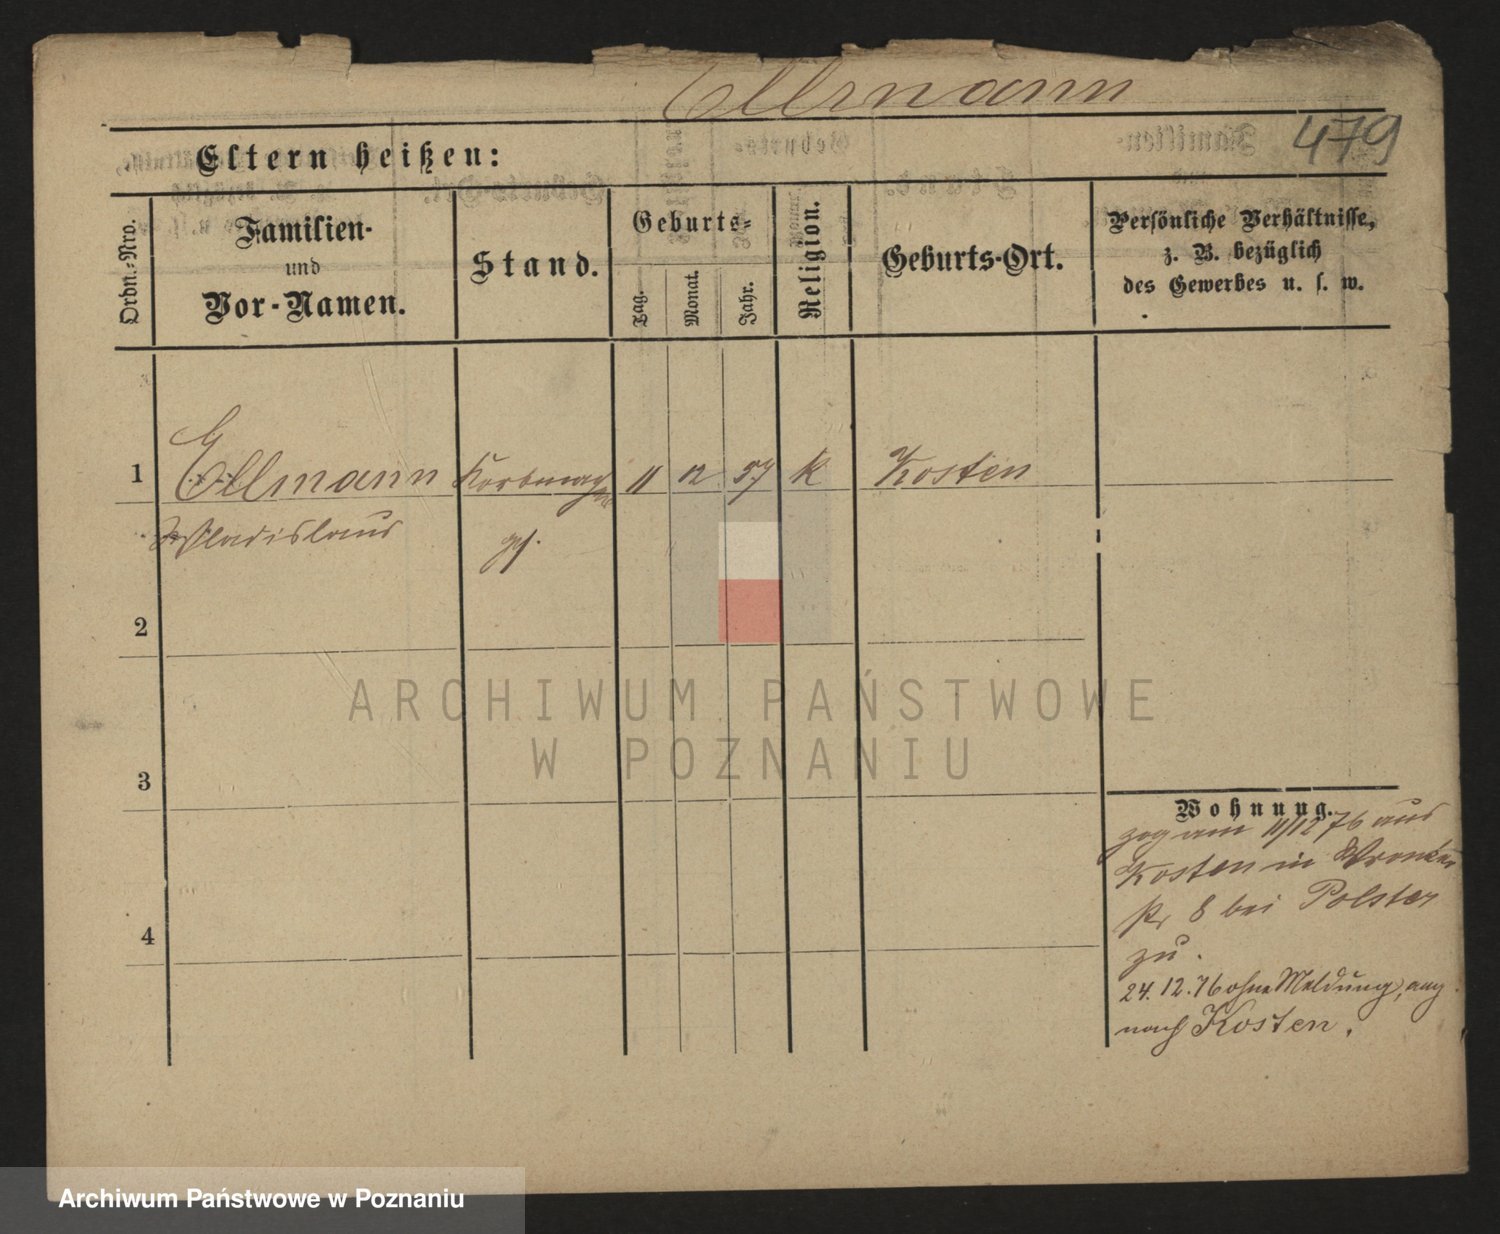 Ellmann
479
Eltern heißen:
Ordn.-Nro.
Familien-
und
Vor-Namen.
Stand.
Geburts-
Tag.
Monat.
Jahr.
Religion.
Geburts-Ort.
Persönliche Verhältnisse,
z. B. bezüglich
des Gewerbes u. s. w.
1 Ellmann Korbmacher 11 12 57 K Kosten
Wladislaus
2
3
4
Wohnung.
zog am 11/12 76 aus
Kosten in Wronker
Str 8 bei Polster
zu.
24.12.76 ohne Meldung,
nach Kosten.
ARCHIWUM PAŃSTWOWE
W POZNANIU
Archiwum Państwowe w Poznaniu